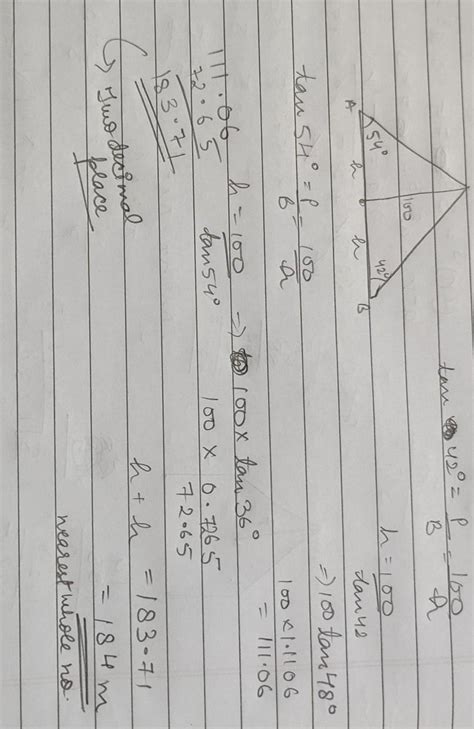 100
54°
42°
A
h
h
B
tan 54° = P/B = 100/h
h = 100/tan 54° => 100 x tan 36°
100 x 0.7265
72.65
111.06
72.65
183.71
Two decimal
place
tan 42° = P/B = 100/h
h = 100/tan 42
=> 100 tan 48°
100 x 1.1106
= 111.06
h + h = 183.71
= 184 m
nearest whole no.